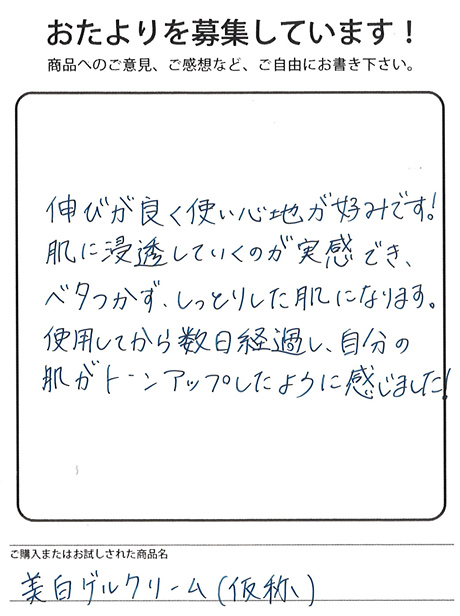 おたよりを募集しています！
商品へのご意見、ご感想など、ご自由にお書き下さい。
伸びが良く使い心地が好みです!
肌に浸透していくのが実感でき、
ベタつかず、しっとりした肌になります。
使用してから数日経過し、自分の
肌がトーンアップしたように感じました!
ご購入またはお試しされた商品名
美白ゲルクリーム(仮称)